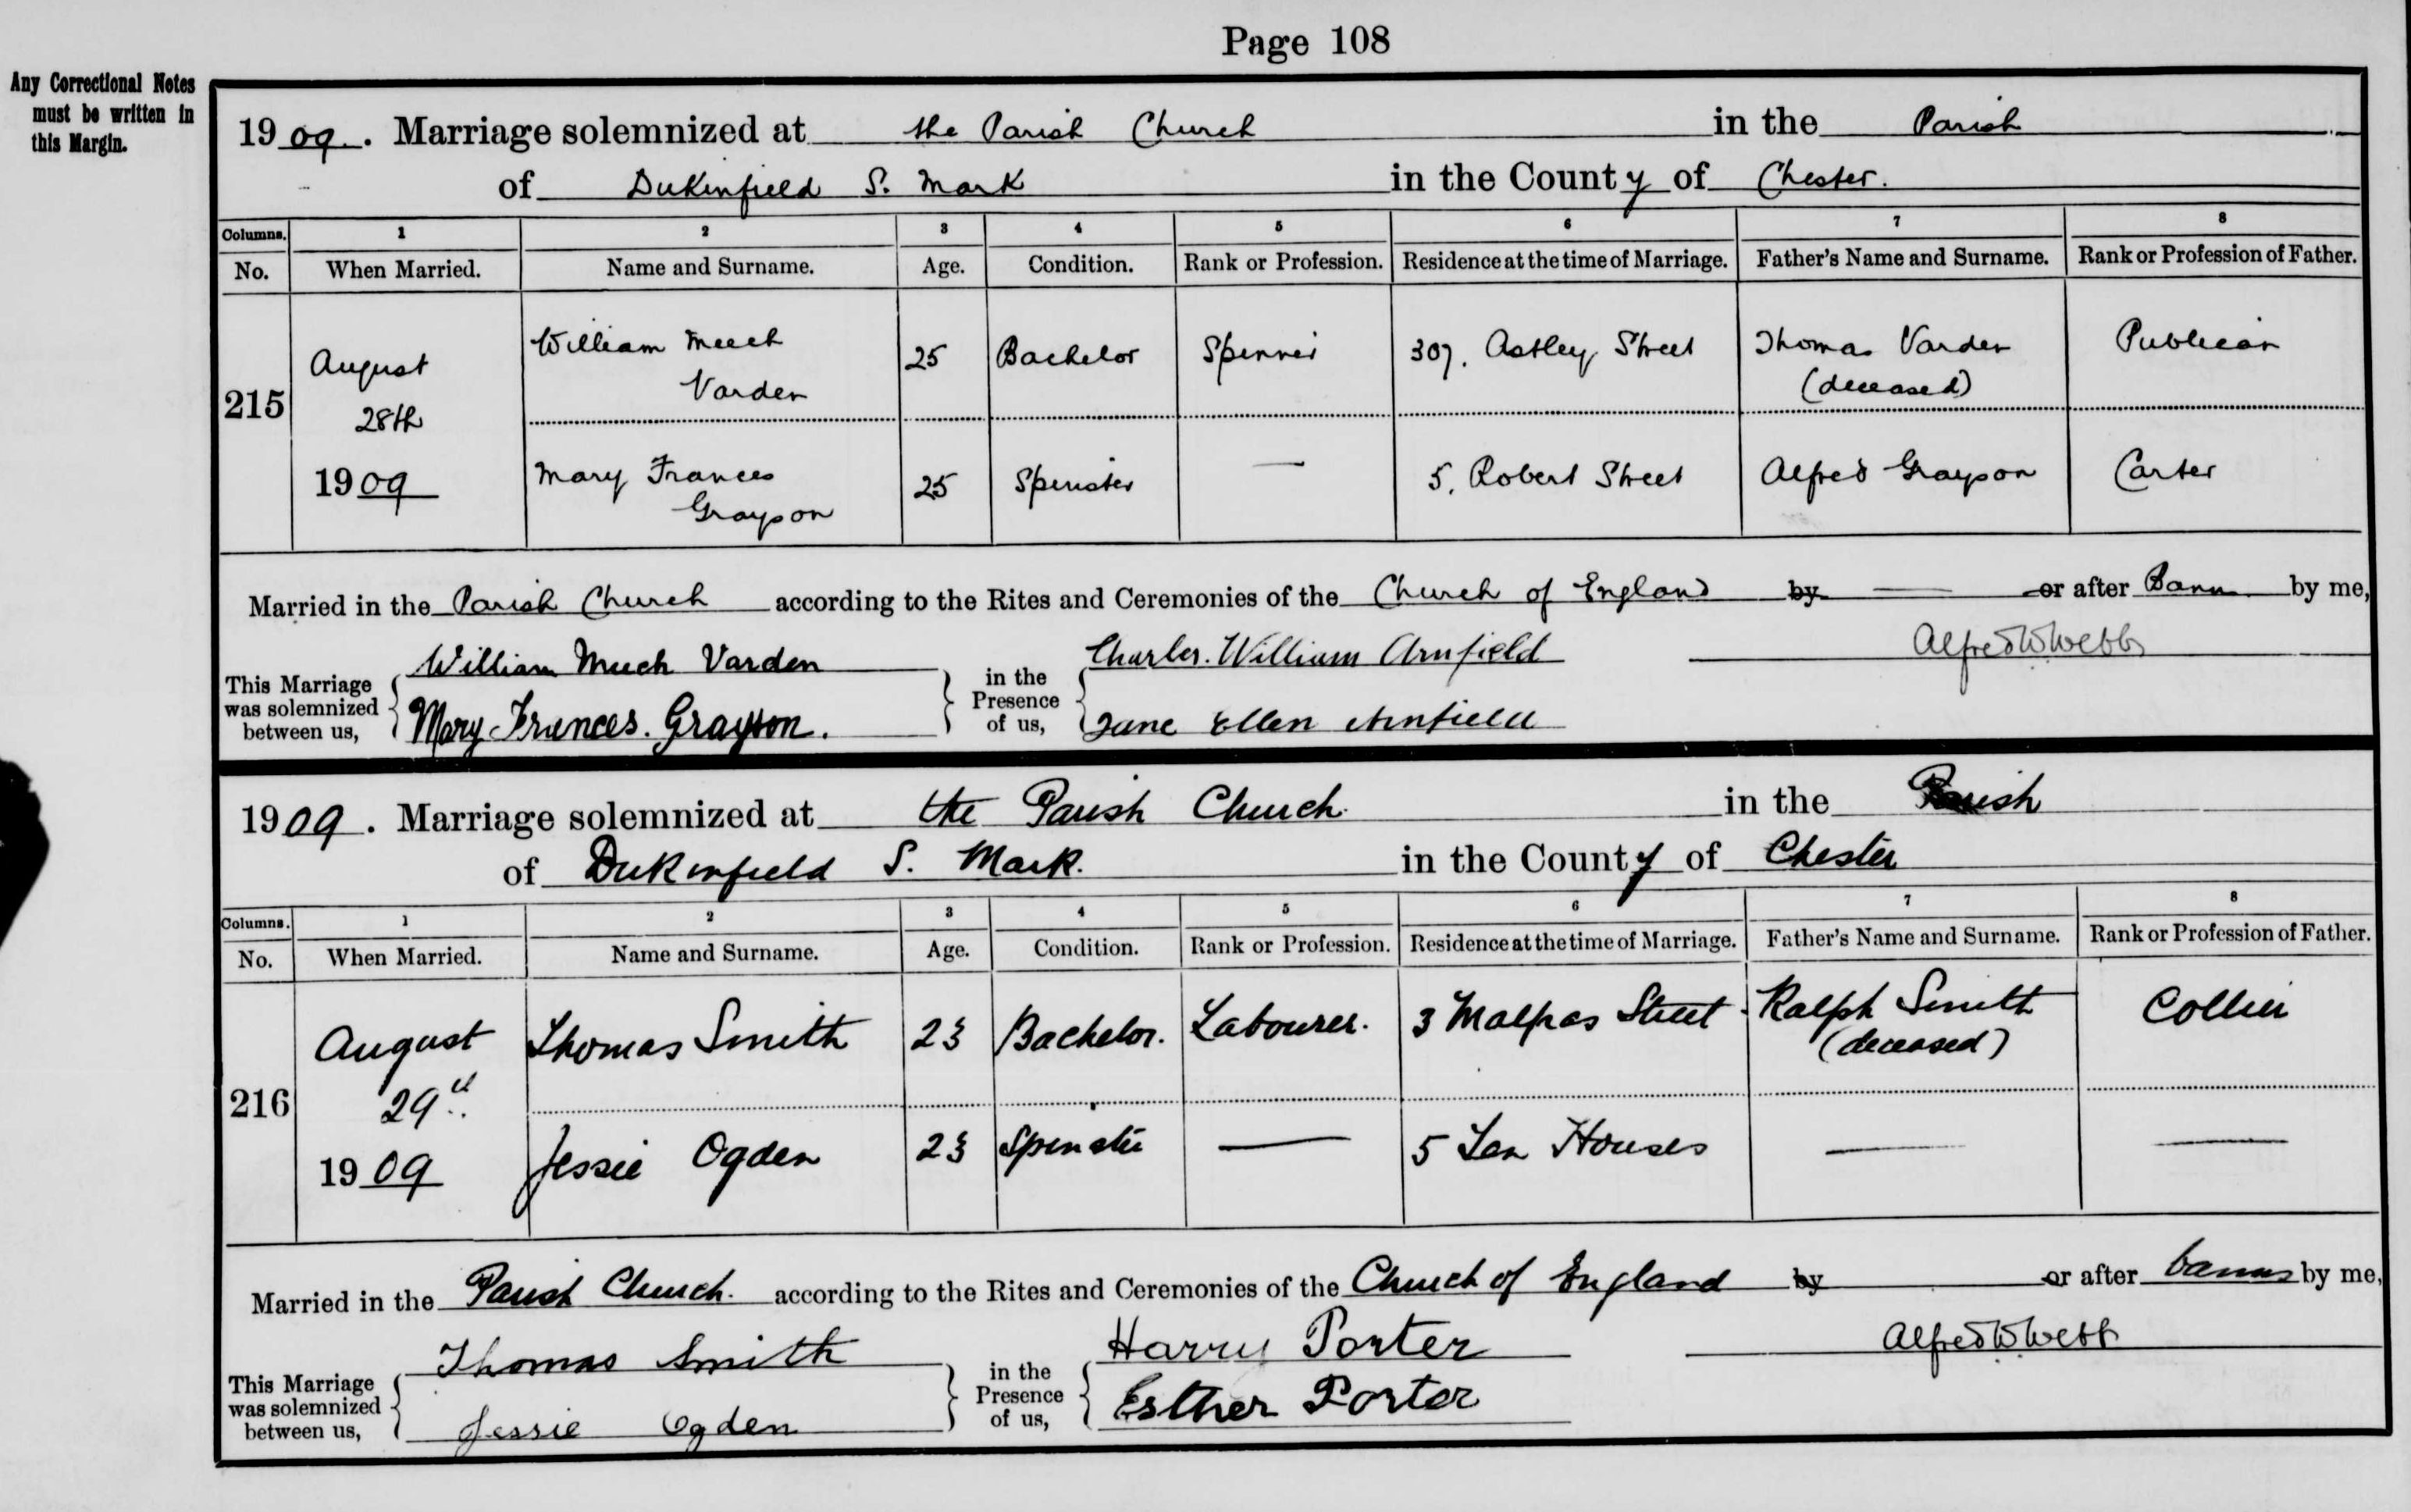 Page 108
Any Correctional Notes
must be written in
this Margin.
1909. Marriage solemnized at the Parish Church in the Parish
of Dukinfield S. Mark in the County of Chester.
Columns. 1 2 3 4 5 6 7 8
No. When Married. Name and Surname. Age. Condition. Rank or Profession. Residence at the time of Marriage. Father's Name and Surname. Rank or Profession of Father.
215 August 28th 1909
William Meech Varden 25 Bachelor Spinner 307. Astley Street Thomas Varden (deceased) Publican
Mary Frances Grayson 25 Spinster — 5. Robert Street Alfred Grayson Carter
Married in the Parish Church according to the Rites and Ceremonies of the Church of England by — or after Banns by me,
Alfred W Webb
This Marriage was solemnized between us, William Meech Varden
Mary Frances. Grayson.
in the Presence of us, Charles. William Arnfield
Jane Ellen Arnfield
1909. Marriage solemnized at the Parish Church. in the Parish
of Dukinfield S. Mark. in the County of Chester
Columns. 1 2 3 4 5 6 7 8
No. When Married. Name and Surname. Age. Condition. Rank or Profession. Residence at the time of Marriage. Father's Name and Surname. Rank or Profession of Father.
216 August 29th 1909
Thomas Smith 23 Bachelor. Labourer. 3 Malpas Street Ralph Smith (deceased) Collier
Jessie Ogden 23 Spinster — 5 Ten Houses — —
Married in the Parish Church. according to the Rites and Ceremonies of the Church of England by or after banns by me,
Alfred W Webb
This Marriage was solemnized between us, Thomas Smith
Jessie Ogden
in the Presence of us, Harry Porter
Esther Porter